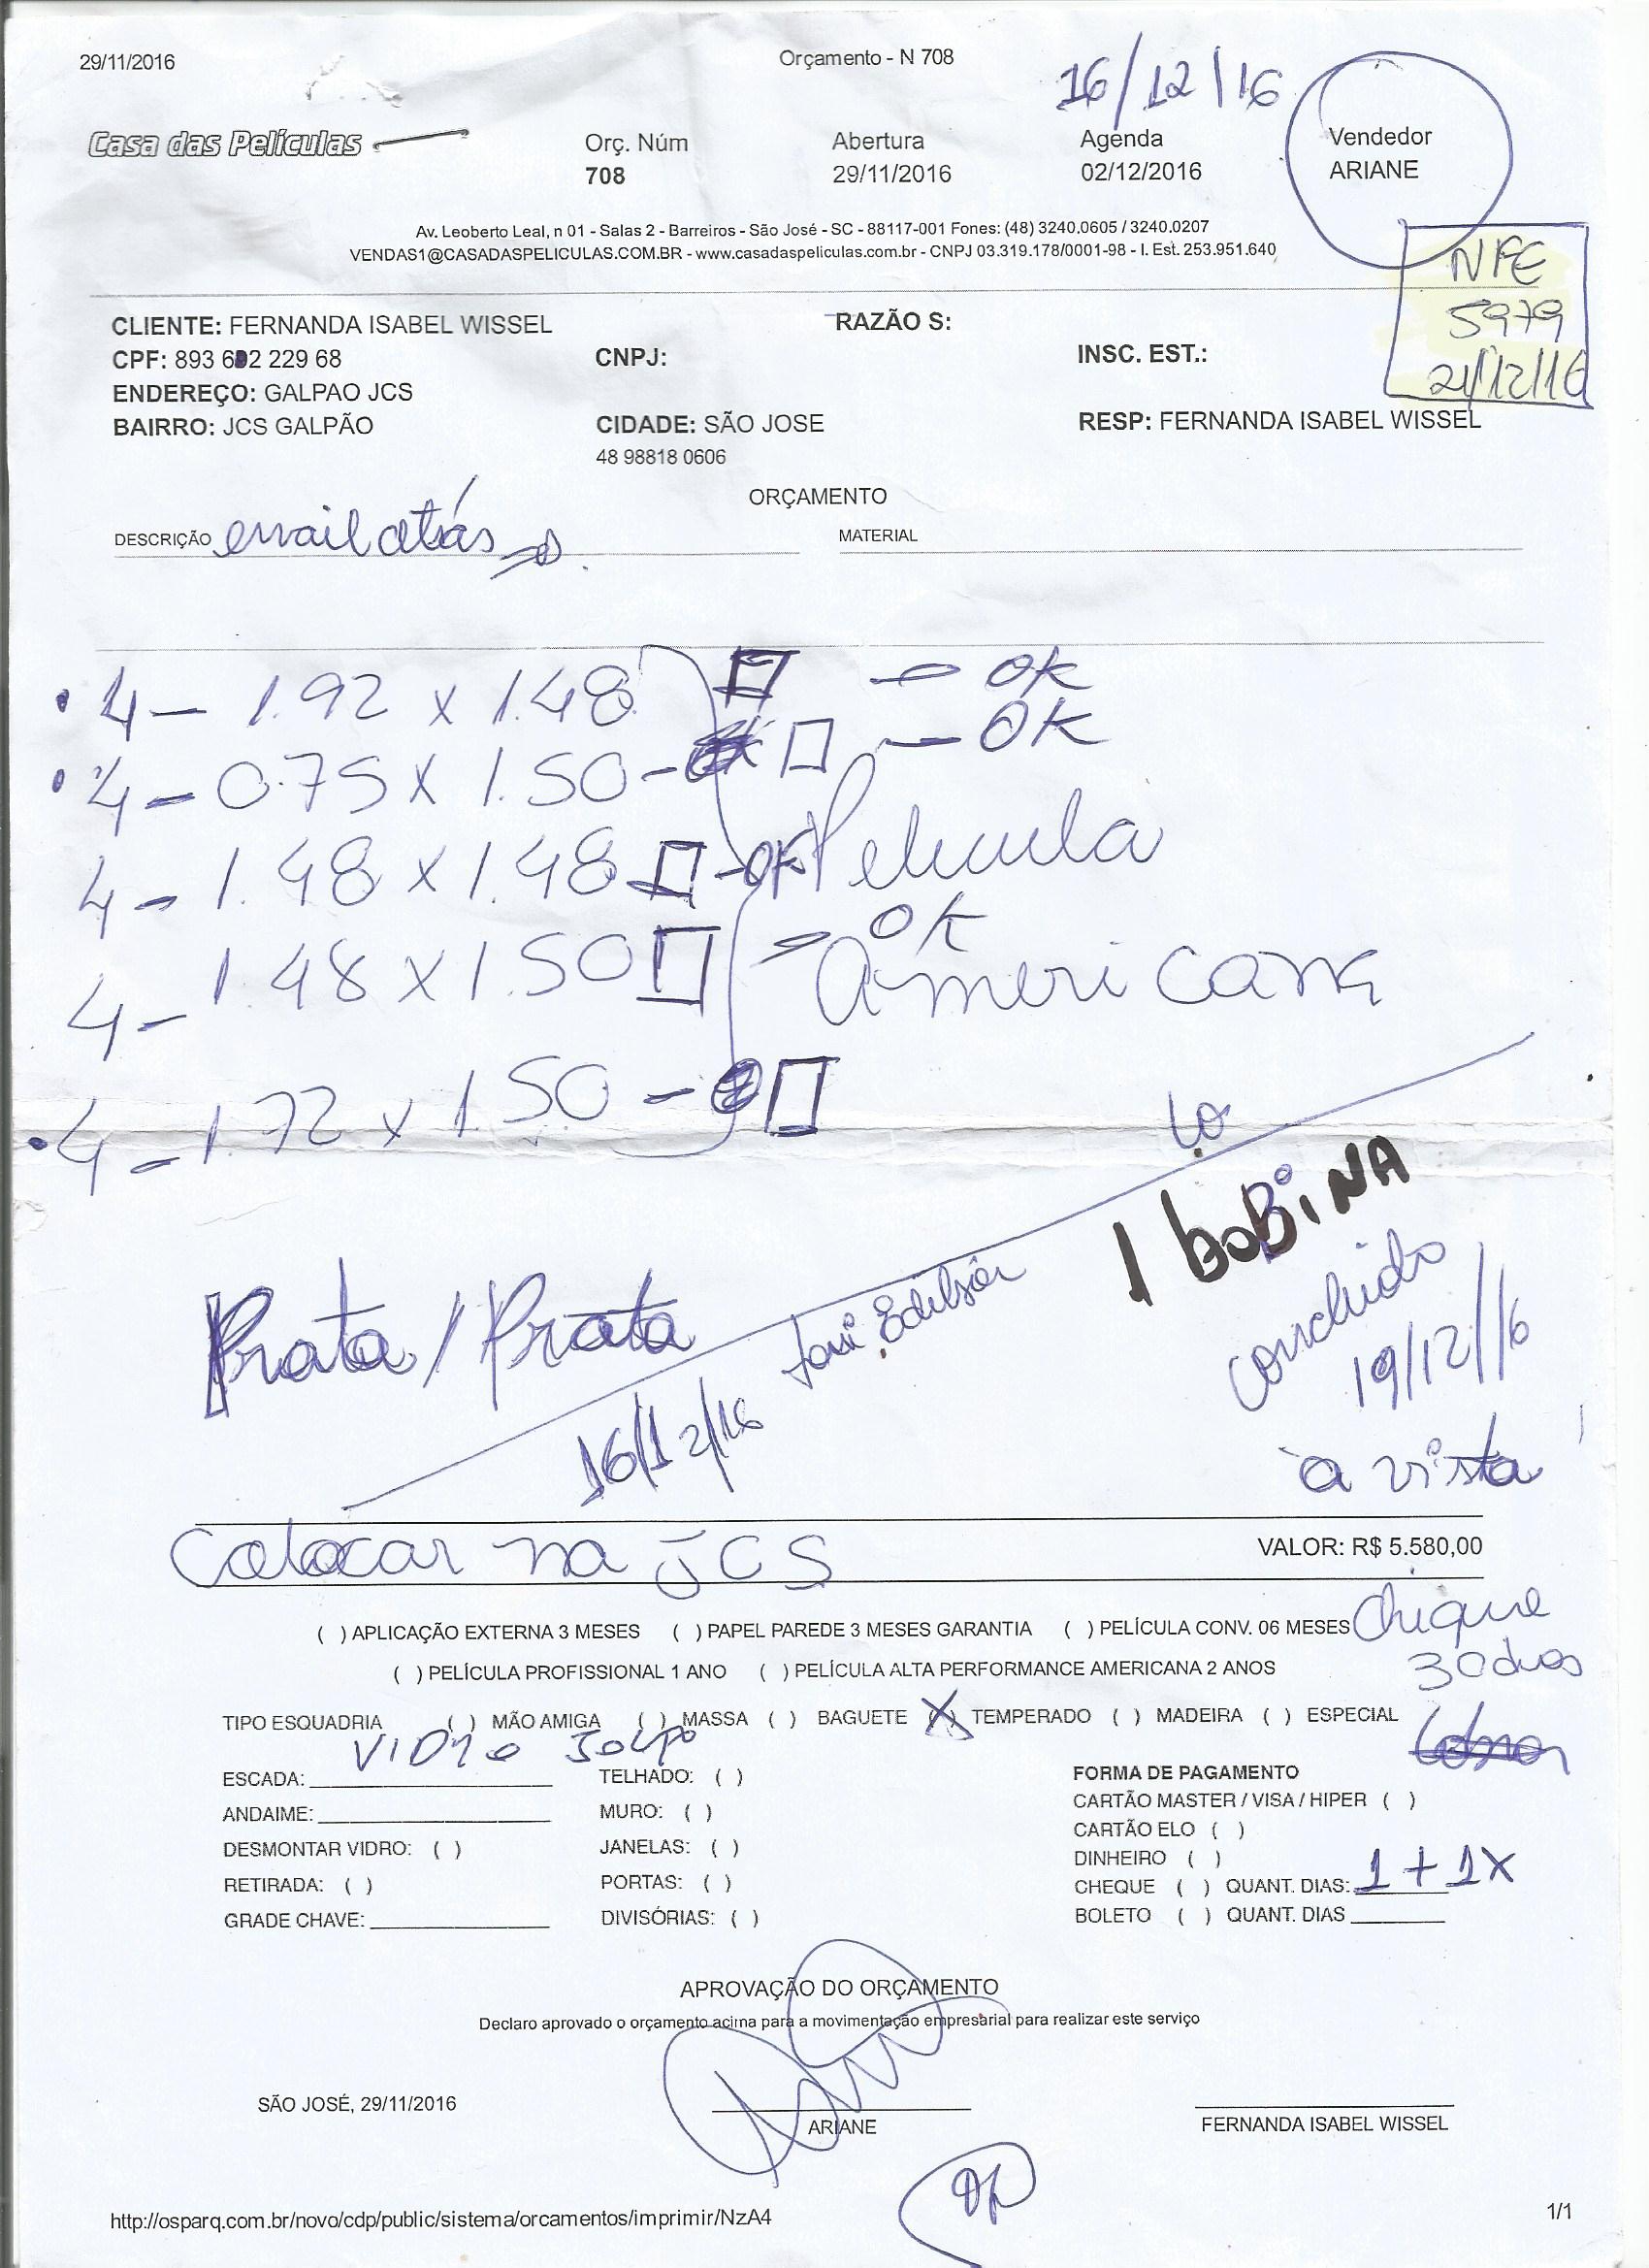 29/11/2016 Orçamento - N 708
16/12/16
Casa das Películas Orç. Núm Abertura Agenda Vendedor
708 29/11/2016 02/12/2016 ARIANE
Av. Leoberto Leal, n 01 - Salas 2 - Barreiros - São José - SC - 88117-001 Fones: (48) 3240.0605 / 3240.0207
VENDAS1@CASADASPELICULAS.COM.BR - www.casadaspeliculas.com.br - CNPJ 03.319.178/0001-98 - I. Est. 253.951.640
NFE
5979
21/12/16
CLIENTE: FERNANDA ISABEL WISSEL RAZÃO S:
CPF: 893 692 229 68 CNPJ: INSC. EST.:
ENDEREÇO: GALPAO JCS
BAIRRO: JCS GALPÃO CIDADE: SÃO JOSE RESP: FERNANDA ISABEL WISSEL
48 98818 0606
ORÇAMENTO
DESCRIÇÃO email atrás MATERIAL
4 - 1.92 x 1.48 - OK
4 - 0.75 x 1.50 - OK
4 - 1.48 x 1.48 - OK Pelicula
4 - 1.48 x 1.50 - OK Americana
4 - 1.72 x 1.50 -
1 BOBINA
Prata / Prata José Edilson concluido
16/12/16 19/12/16
à vista
Colocar na JCS VALOR: R$ 5.580,00
( ) APLICAÇÃO EXTERNA 3 MESES ( ) PAPEL PAREDE 3 MESES GARANTIA ( ) PELÍCULA CONV. 06 MESES Chique
( ) PELÍCULA PROFISSIONAL 1 ANO ( ) PELÍCULA ALTA PERFORMANCE AMERICANA 2 ANOS 30 dias
TIPO ESQUADRIA ( ) MÃO AMIGA ( ) MASSA ( ) BAGUETE (X) TEMPERADO ( ) MADEIRA ( ) ESPECIAL
VIDRO
ESCADA: TELHADO: ( ) FORMA DE PAGAMENTO
ANDAIME: MURO: ( ) CARTÃO MASTER / VISA / HIPER ( )
DESMONTAR VIDRO: ( ) JANELAS: ( ) CARTÃO ELO ( )
RETIRADA: ( ) PORTAS: ( ) DINHEIRO ( )
GRADE CHAVE: DIVISÓRIAS: ( ) CHEQUE ( ) QUANT. DIAS: 1 + 1X
BOLETO ( ) QUANT. DIAS
APROVAÇÃO DO ORÇAMENTO
Declaro aprovado o orçamento acima para a movimentação empresarial para realizar este serviço
SÃO JOSÉ, 29/11/2016
ARIANE FERNANDA ISABEL WISSEL
http://osparq.com.br/novo/cdp/public/sistema/orcamentos/imprimir/NzA4 1/1